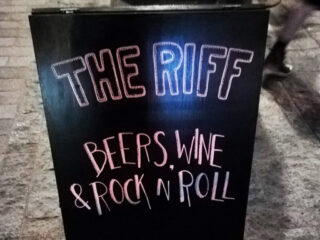 THE RIFF
BEERS, WINE
& ROCK N' ROLL